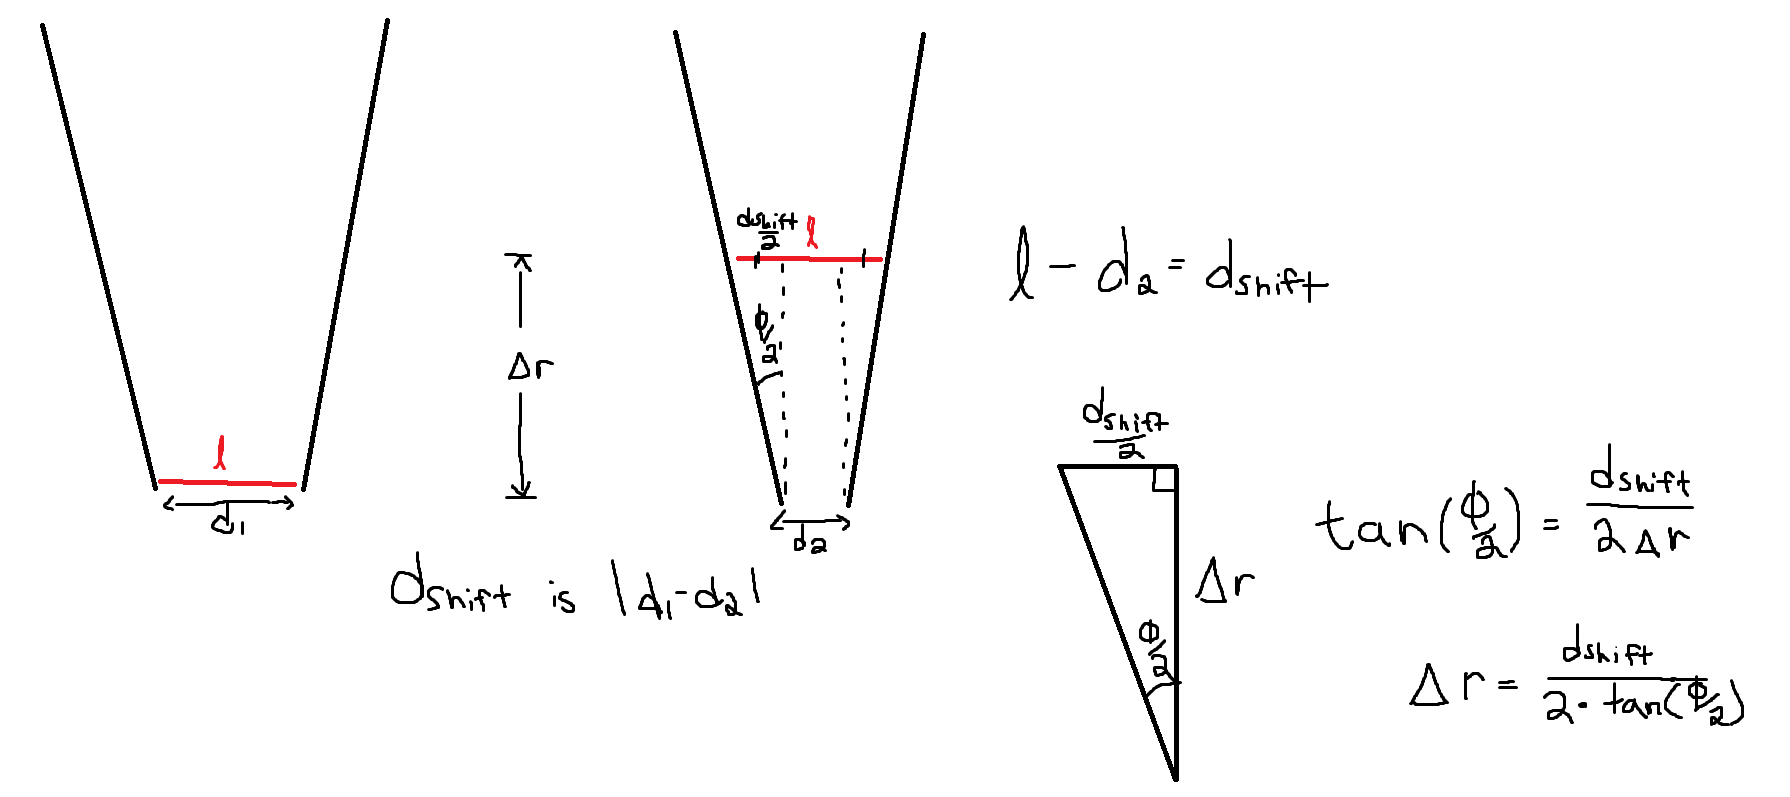 l
d₁
Δr
dshift/2
l
ϕ/2
d₂
dshift is |d₁-d₂|
l - d₂ = dshift
dshift/2
Δr
ϕ/2
tan(ϕ/2) = dshift/2Δr
Δr = dshift/2·tan(ϕ/2)